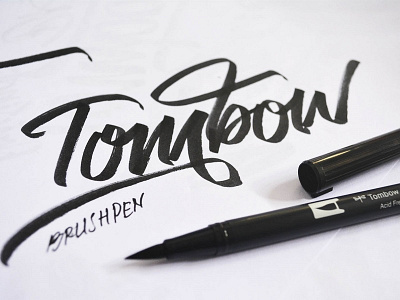 Tombow
BRUSHPEN
Tombow
Acid Free